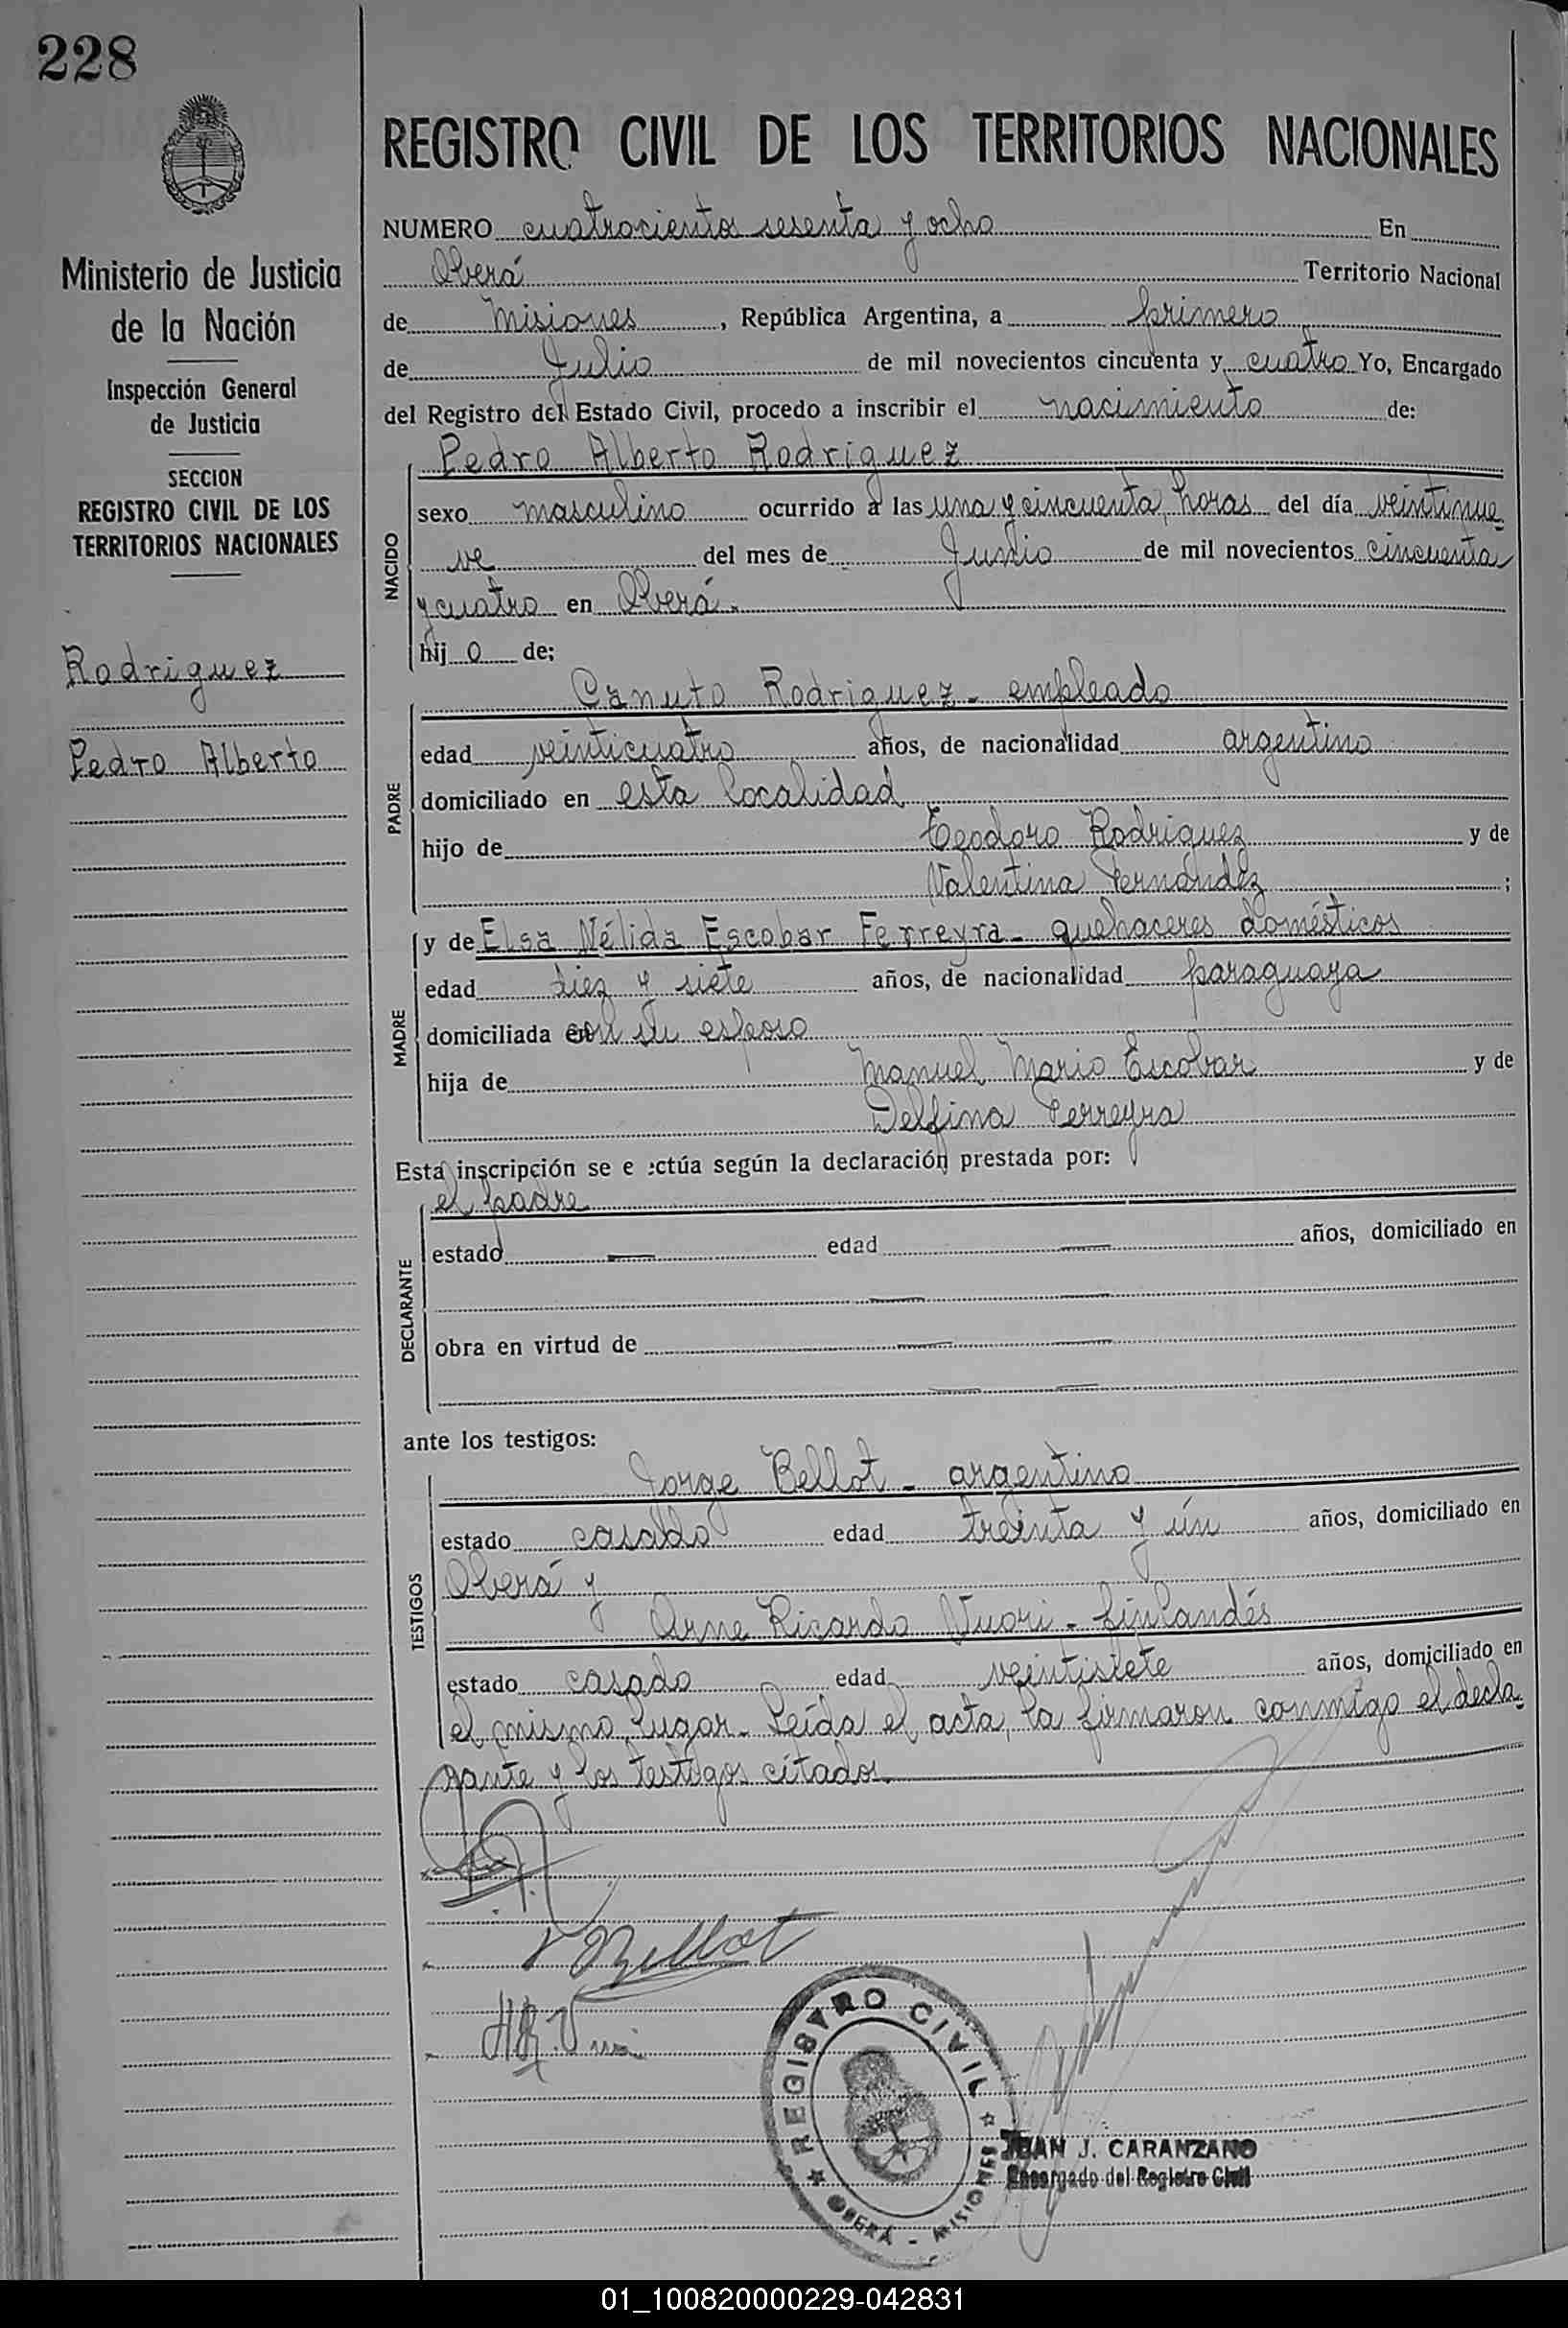 228
REGISTRO CIVIL DE LOS TERRITORIOS NACIONALES
Ministerio de Justicia
de la Nación
Inspección General
de Justicia
SECCION
REGISTRO CIVIL DE LOS
TERRITORIOS NACIONALES
Rodriguez
Pedro Alberto
NUMERO cuatrocientos sesenta y ocho En
Oberá Territorio Nacional
de Misiones, República Argentina, a primero
de Julio de mil novecientos cincuenta y cuatro Yo, Encargado
del Registro del Estado Civil, procedo a inscribir el nacimiento de:
NACIDO
Pedro Alberto Rodriguez
sexo masculino ocurrido a las una y cincuenta horas del día veintinue-
ve del mes de Junio de mil novecientos cincuenta
y cuatro en Oberá.
hij o de;
PADRE
Canuto Rodriguez - empleado
edad veinticuatro años, de nacionalidad argentino
domiciliado en esta localidad
hijo de Teodoro Rodriguez y de
Valentina Fernández ;
MADRE
y de Elsa Nélida Escobar Ferreyra - quehaceres domésticos
edad diez y siete años, de nacionalidad paraguaya
domiciliada con su esposo
hija de Manuel Mario Escobar y de
Delfina Ferreyra
Esta inscripción se e ectúa según la declaración prestada por:
DECLARANTE
el padre
estado — edad — años, domiciliado en
— —
obra en virtud de — —
— —
ante los testigos:
TESTIGOS
Jorge Bellot - argentino
estado casado edad treinta y ún años, domiciliado en
Oberá y
Arne Ricardo Vuori - finlandés
estado casado edad veintisiete años, domiciliado en
el mismo lugar - Leída el acta, la firmaron conmigo el decla-
rante y los testigos citados.
Bellot
REGISTRO CIVIL
OBERÁ - MISIONES
JUAN J. CARANZANO
Encargado del Registro Civil
01_100820000229-042831